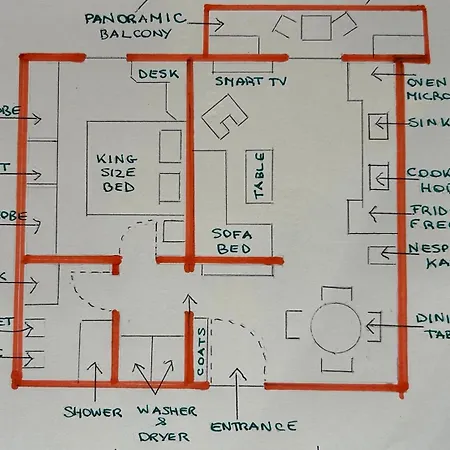 PANORAMIC
BALCONY
DESK
SMART TV
OVEN
MICRO
SINK
KING
SIZE
BED
TABLE
COOK
HO
FRID
FREE
SOFA
BED
NESP
KA
OBE
T
OBE
K
ET
COATS
DINI
TAB
SHOWER
WASHER
&
DRYER
ENTRANCE